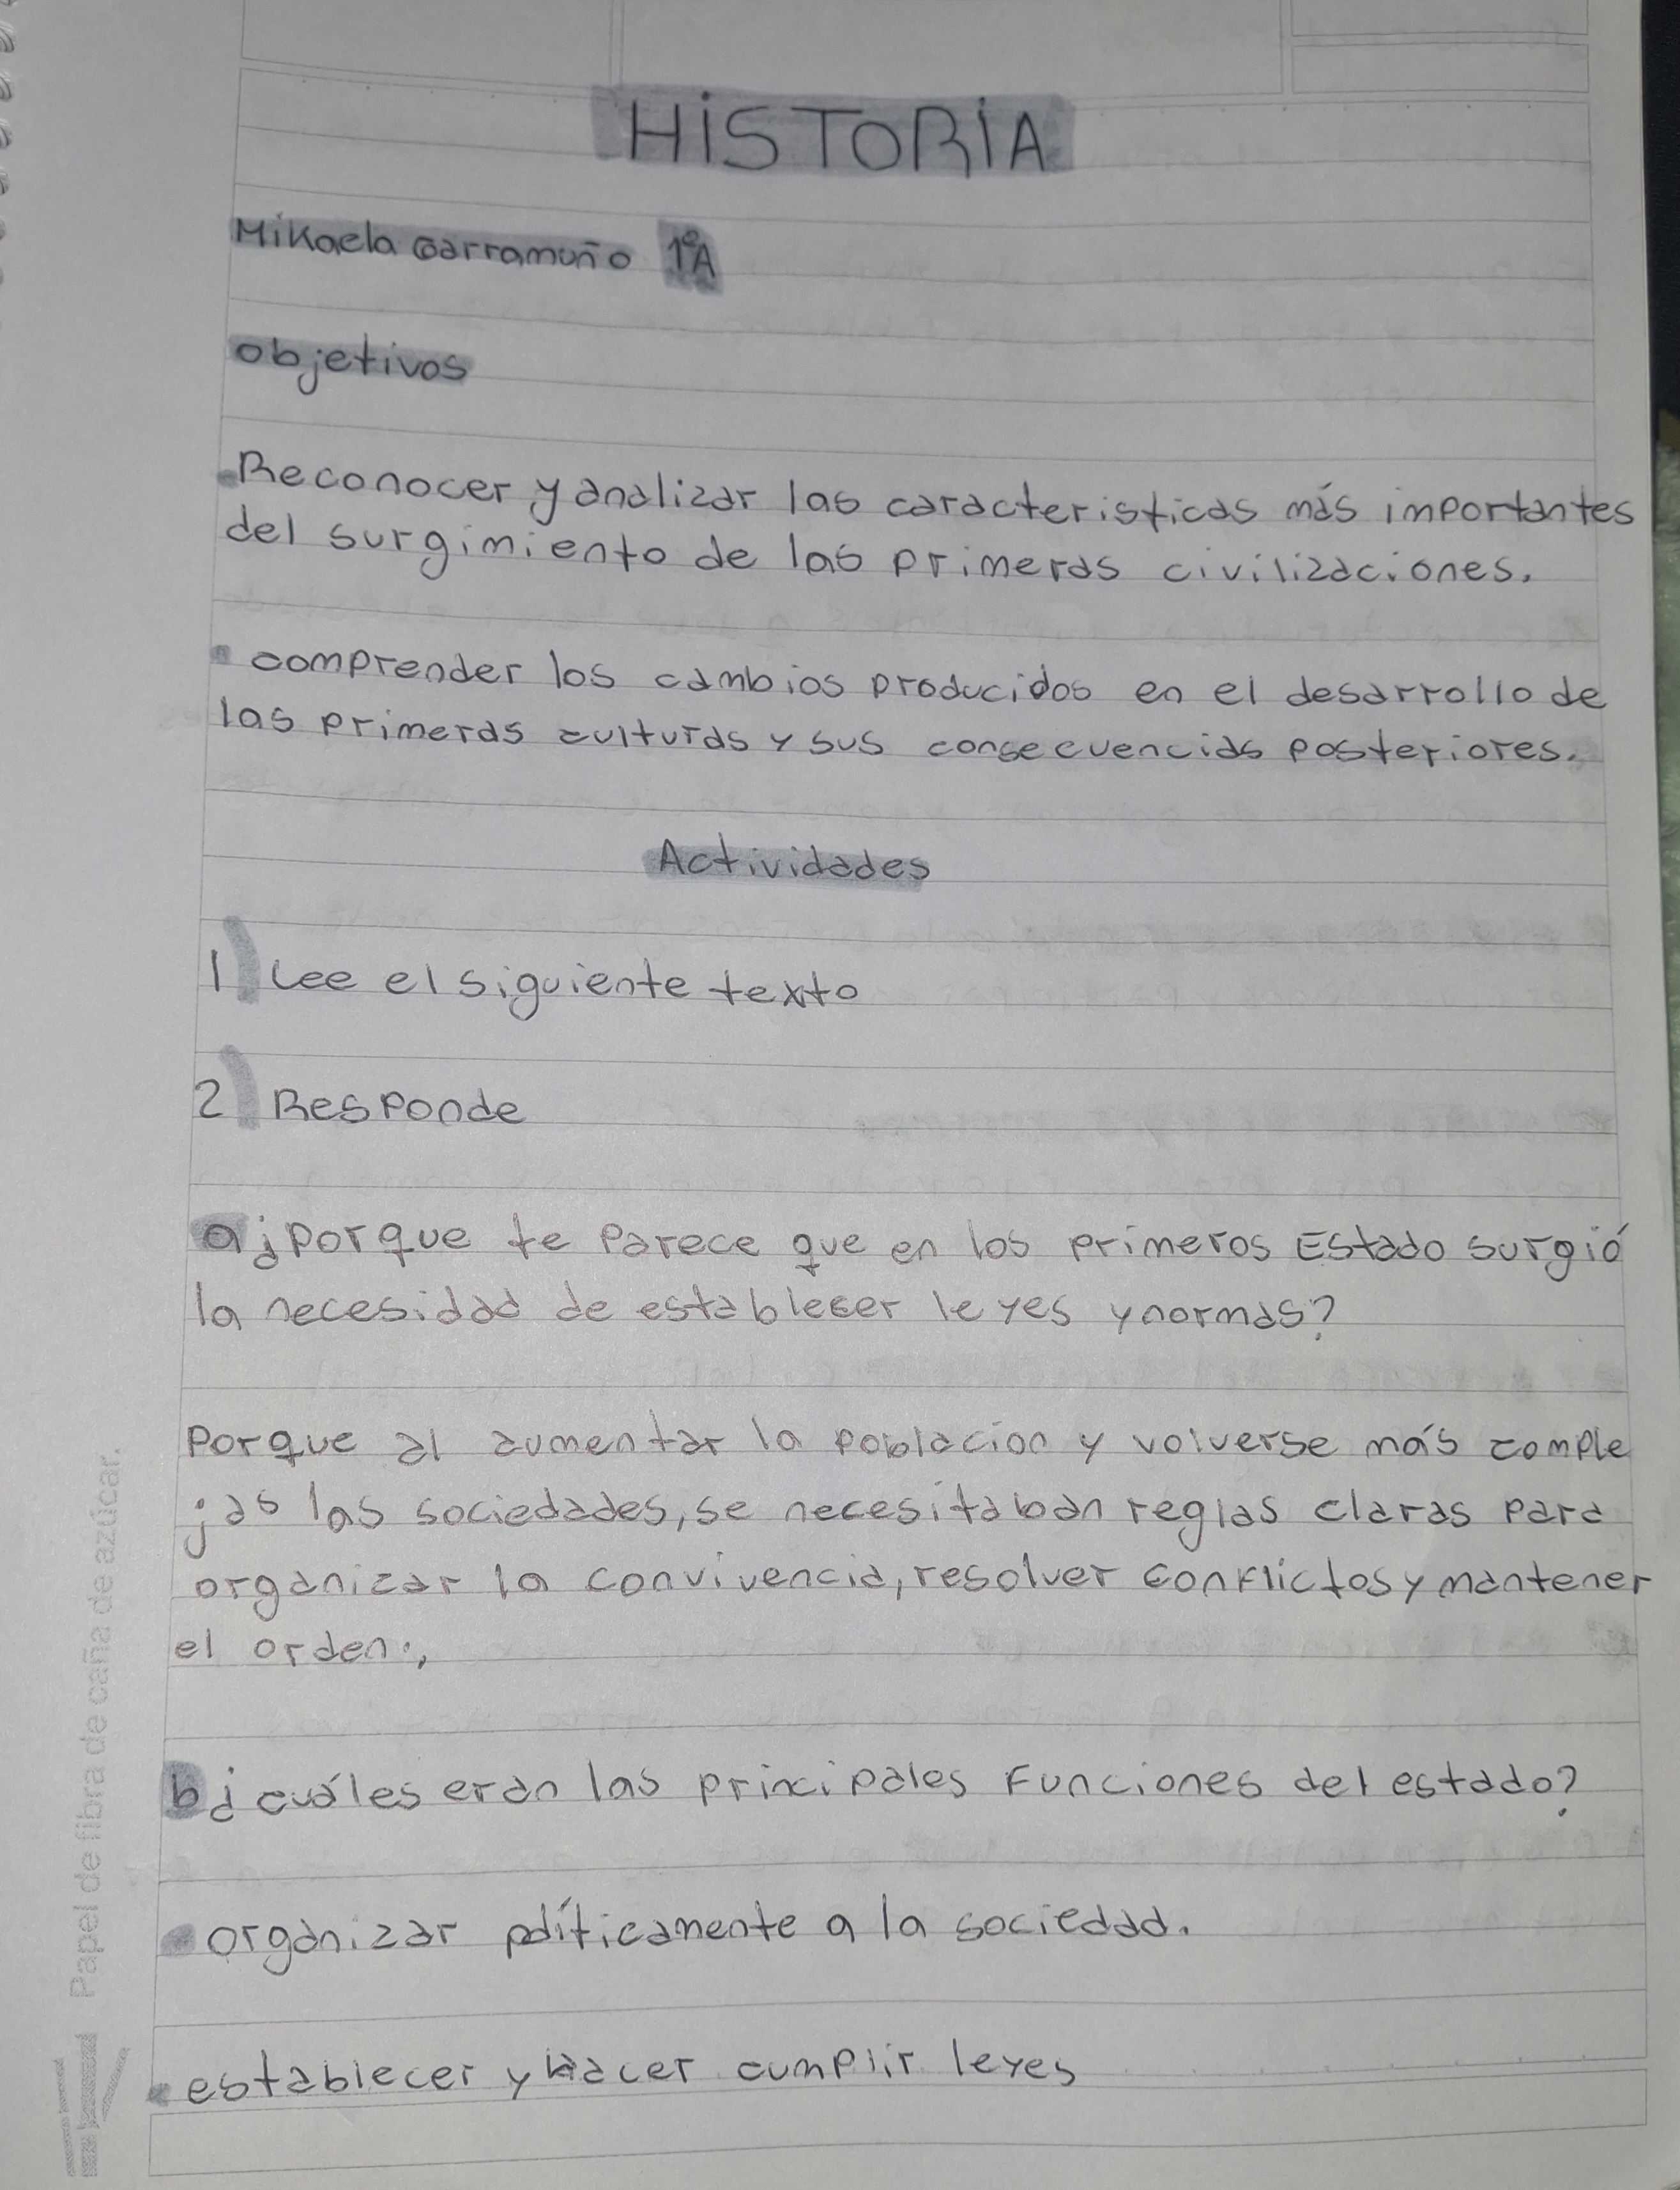 HiSTORiA
Mikaela Garramuño 1°A
objetivos
•Reconocer y analizar las caracteristicas más importantes
del surgimiento de las primeras civilizaciones.
• comprender los cambios producidos en el desarrollo de
las primeras culturas y sus consecuencias posteriores.
Actividades
1) Lee el siguiente texto
2) Responde
a¿porque te parece que en los primeros Estado surgió
la necesidad de establecer leyes y normas?
Porque al aumentar la poblacion y volverse más comple
jas las sociedades, se necesitaban reglas claras para
organizar la convivencia, resolver conflictos y mantener
el orden.,
b¿cuáles eran las principales Funciones del estado?
•organizar políticamente a la sociedad.
•establecer y hacer cumplir leyes
Papel de fibra de caña de azúcar.